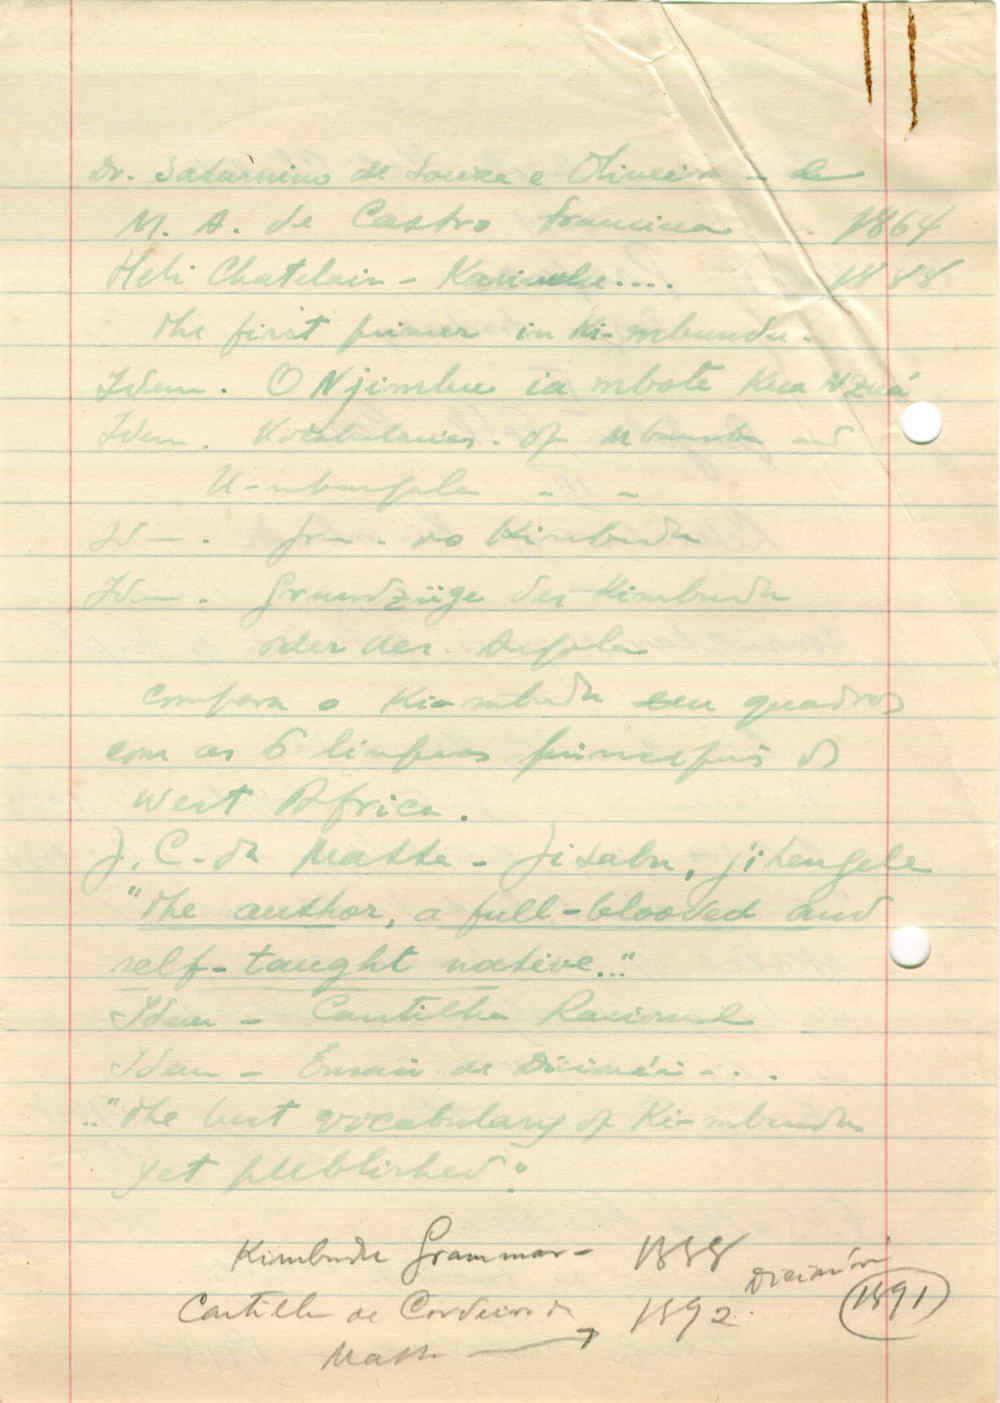 Dr. Saturnino de Souza e Oliveira - e
M. A. de Castro Francina 1864
Heli Chatelain - Karivulu.... 1888
the first primer in Ki-mbundu.
Idem. O Njimbu ia mbote Kua Nzuá
Idem. Vocabularies. of Mbamba and
U-mbangala - -
Id-. Gra. do Kimbundu
Idem. Grundzüge des Kimbundu
oder der Angola
compara o Ki-mbundu em quadros
com as 6 linguas principais da
West Africa.
J. C. da Matta - Jisabu, jihengele
"the author, a full-blooded and
self-taught native..."
Idem - Cartilha Racional
Idem - Ensaio de Dicionári - . .
.."the best vocabulary of Ki-mbundu
yet published".
Kimbundu Grammar - 1888
Dicionário
Cartilha de Cordeiro da 1892. 1891
Matta